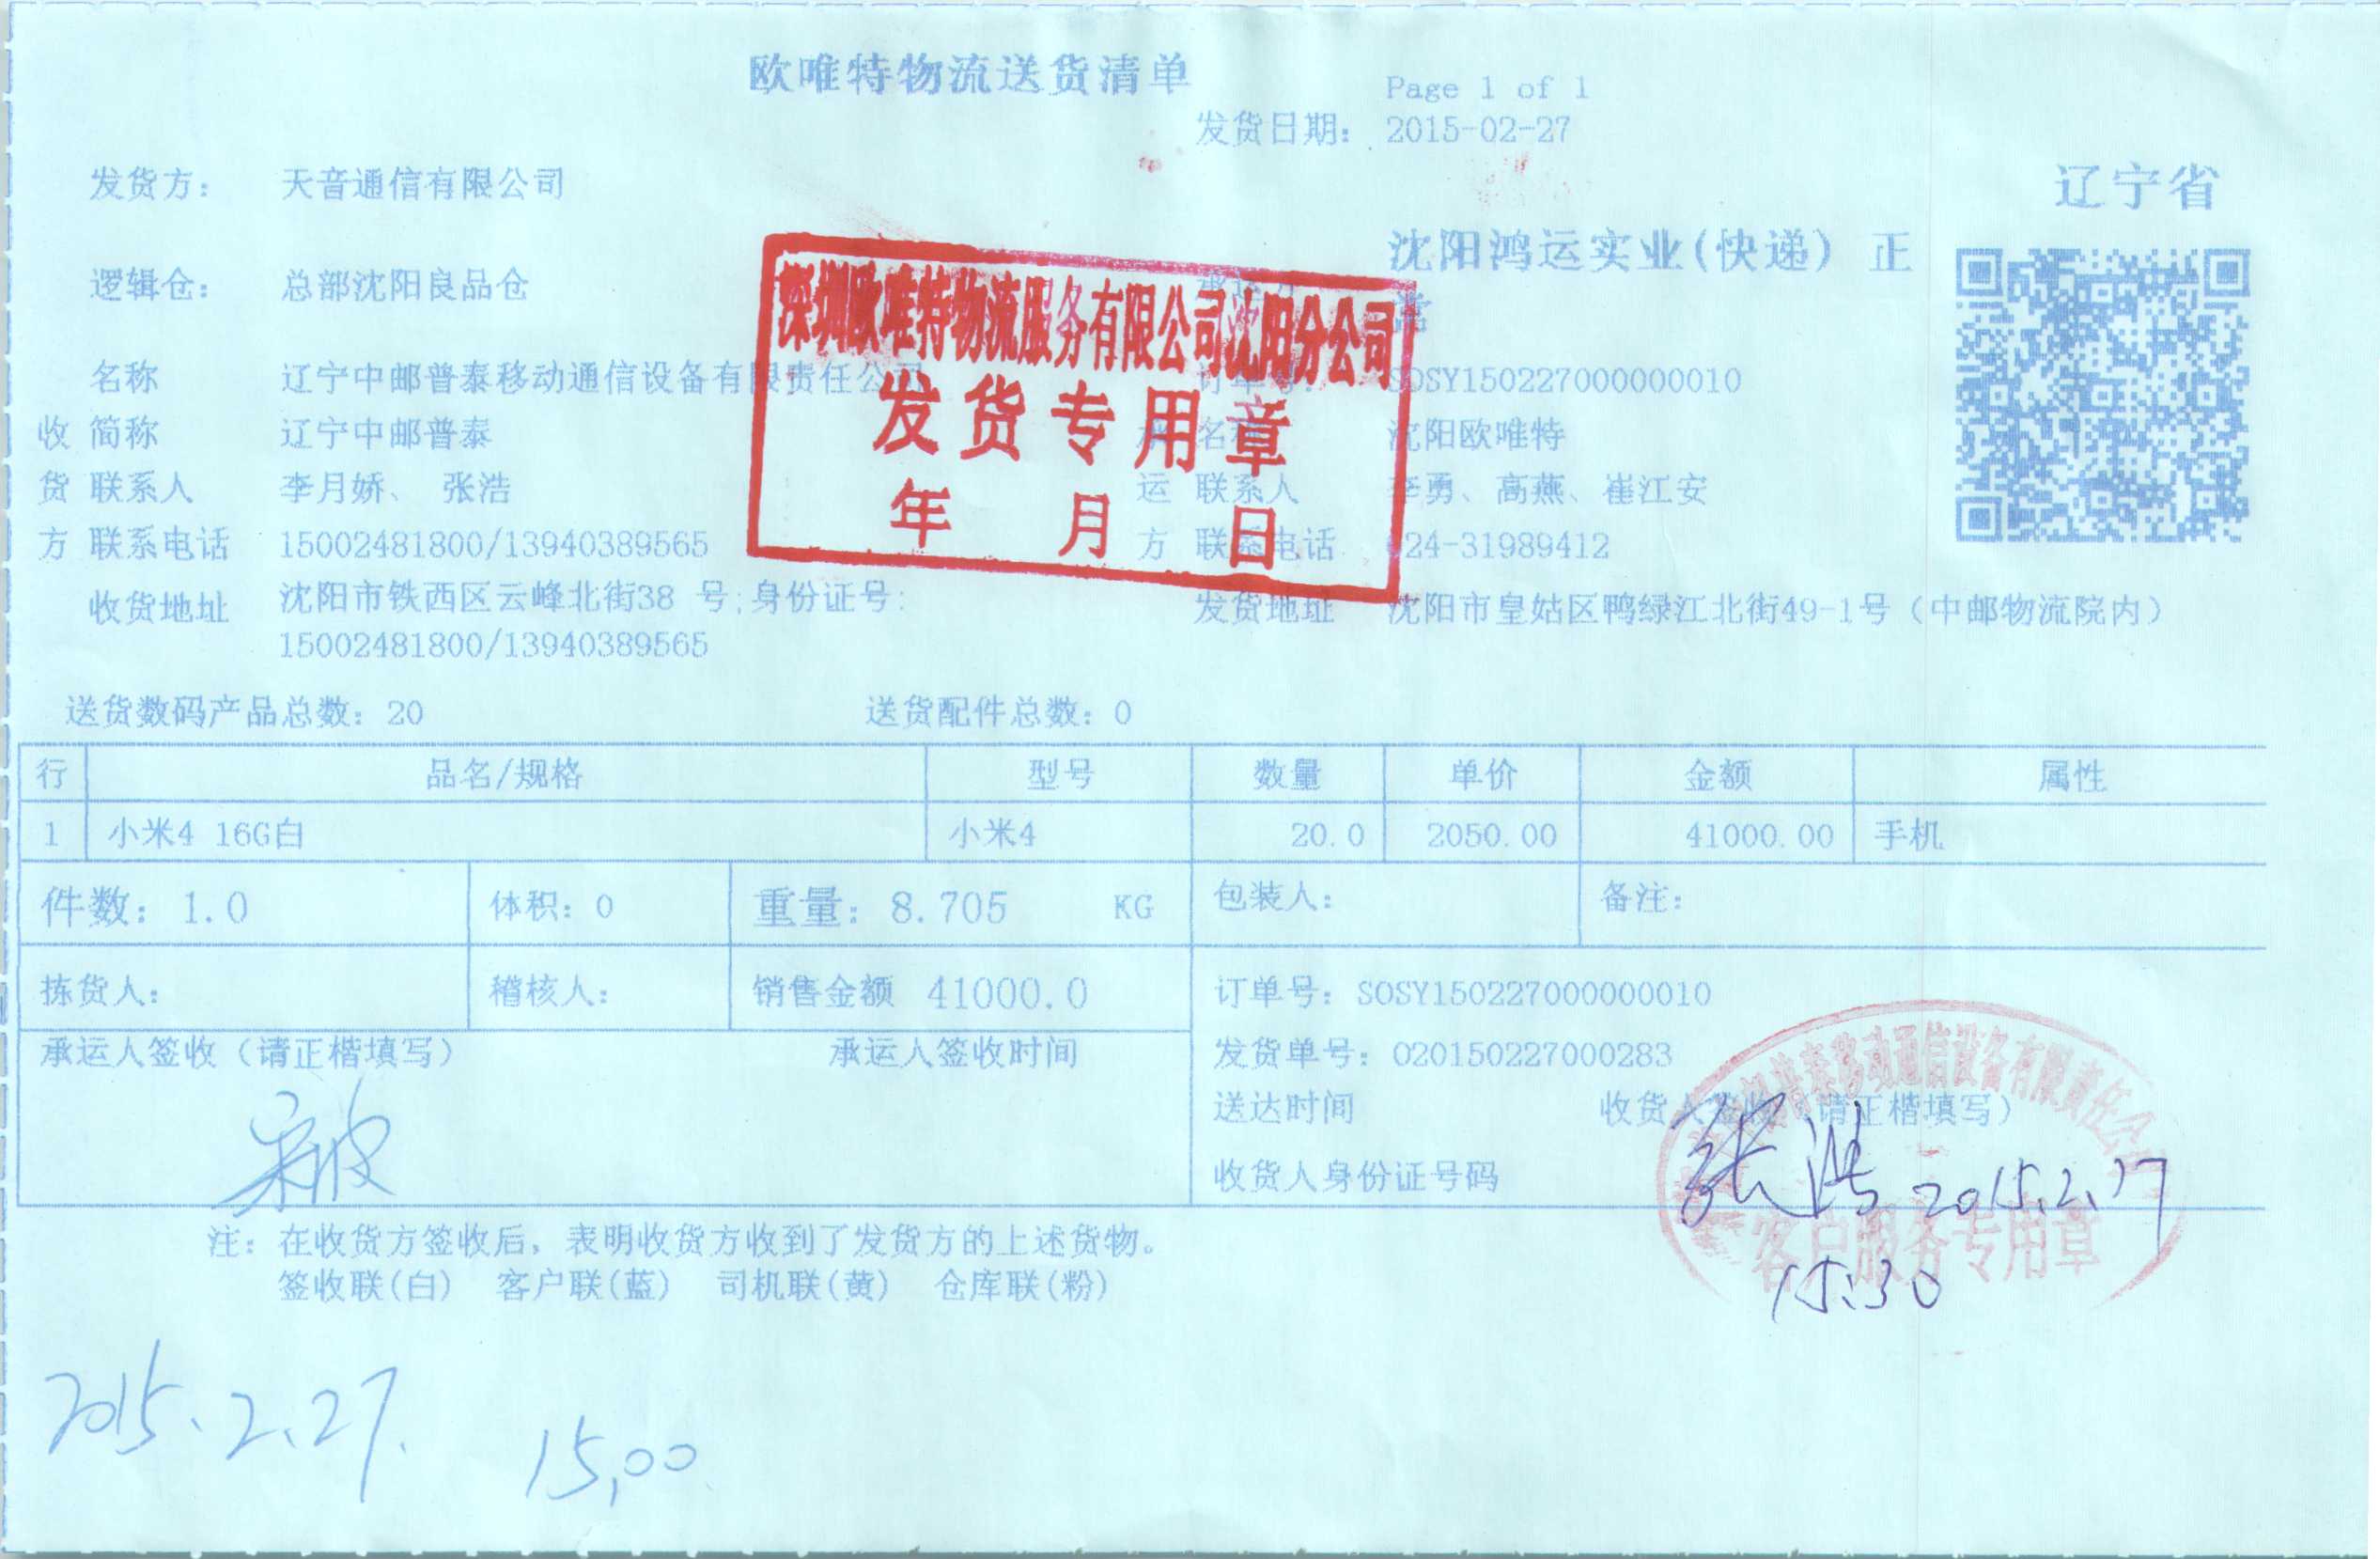 欧唯特物流送货清单
Page 1 of 1
发货日期: 2015-02-27
发货方: 天音通信有限公司
辽宁省
沈阳鸿运实业(快递) 正
常
逻辑仓: 总部沈阳良品仓
深圳欧唯特物流服务有限公司沈阳分公司
发货专用章
年 月 日
名称 辽宁中邮普泰移动通信设备有限责任公司
订单号: SOSY150227000000010
收 简称 辽宁中邮普泰
承 名称 沈阳欧唯特
货 联系人 李月娇、 张浩
运 联系人 李勇、高燕、崔江安
方 联系电话 15002481800/13940389565
方 联系电话 024-31989412
收货地址 沈阳市铁西区云峰北街38 号;身份证号:
15002481800/13940389565
发货地址 沈阳市皇姑区鸭绿江北街49-1号（中邮物流院内）
送货数码产品总数: 20 送货配件总数: 0
行 品名/规格 型号 数量 单价 金额 属性
1 小米4 16G白 小米4 20.0 2050.00 41000.00 手机
件数: 1.0 体积: 0 重量: 8.705 KG 包装人: 备注:
拣货人: 稽核人: 销售金额 41000.0 订单号: SOSY150227000000010
承运人签收（请正楷填写） 承运人签收时间 发货单号: O20150227000283
送达时间 收货人签收（请正楷填写）
收货人身份证号码
张浩 2015.2.27
15:30
普泰移动通信设备有限责任公
客户服务专用章
注: 在收货方签收后, 表明收货方收到了发货方的上述货物。
签收联(白) 客户联(蓝) 司机联(黄) 仓库联(粉)
2015.2.27. 15,00